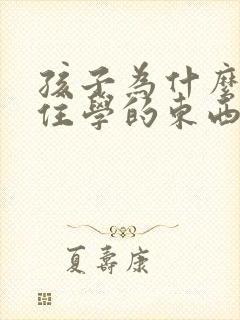 孩子為什麼
住學的東西
夏壽康